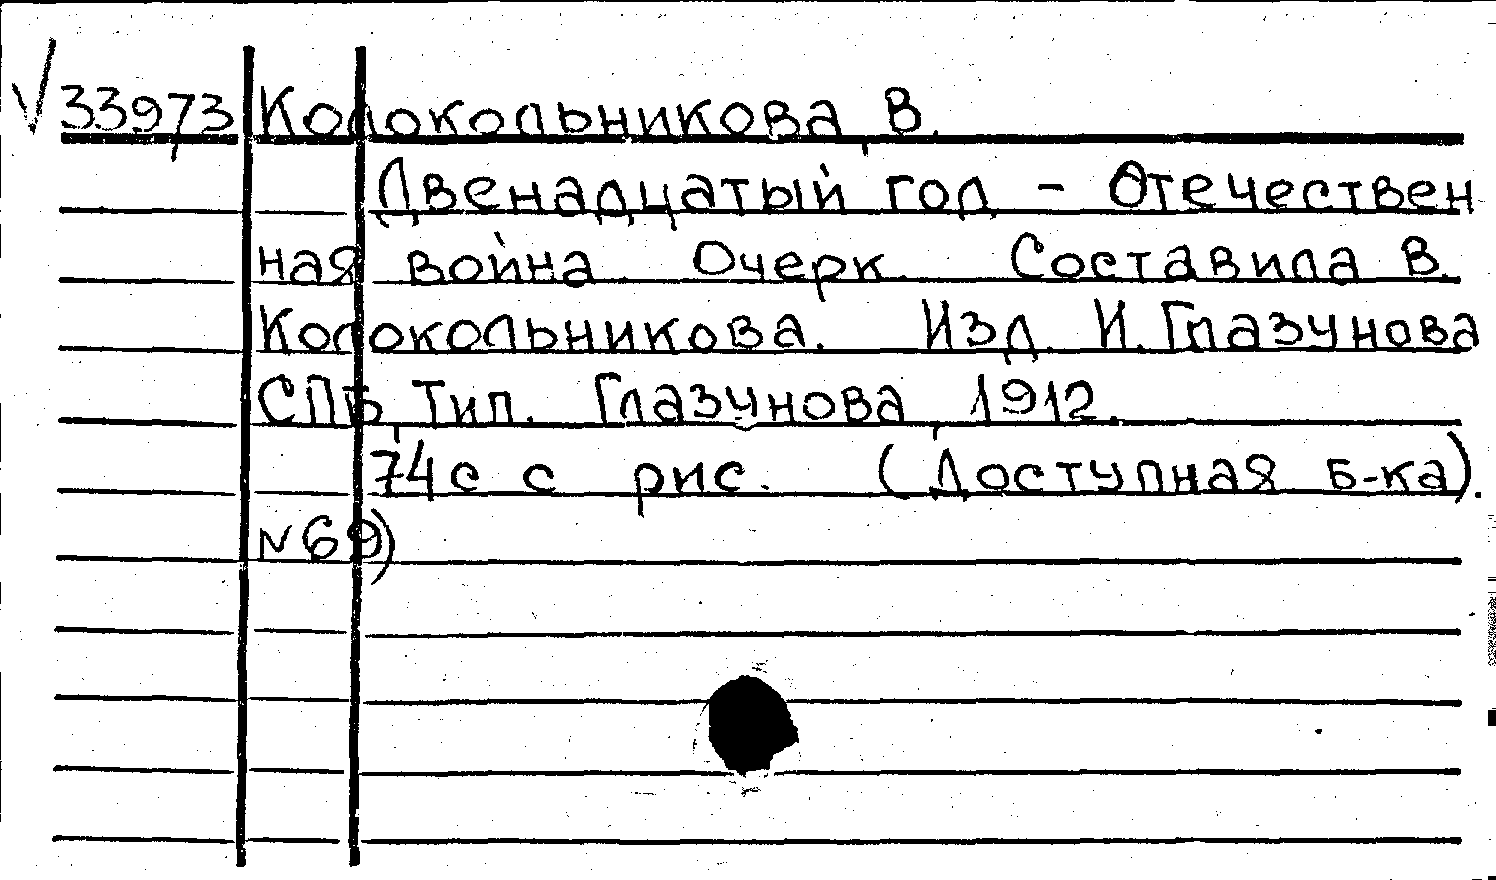 √ 33973 Колокольникова В.
Двенадцатый год - Отечествен
ная война. Очерк. Составила В.
Колокольникова. Изд. И. Глазунова
СПБ, Тип. Глазунова, 1912.
74 с с рис. (Доступная б-ка).
№ 69)